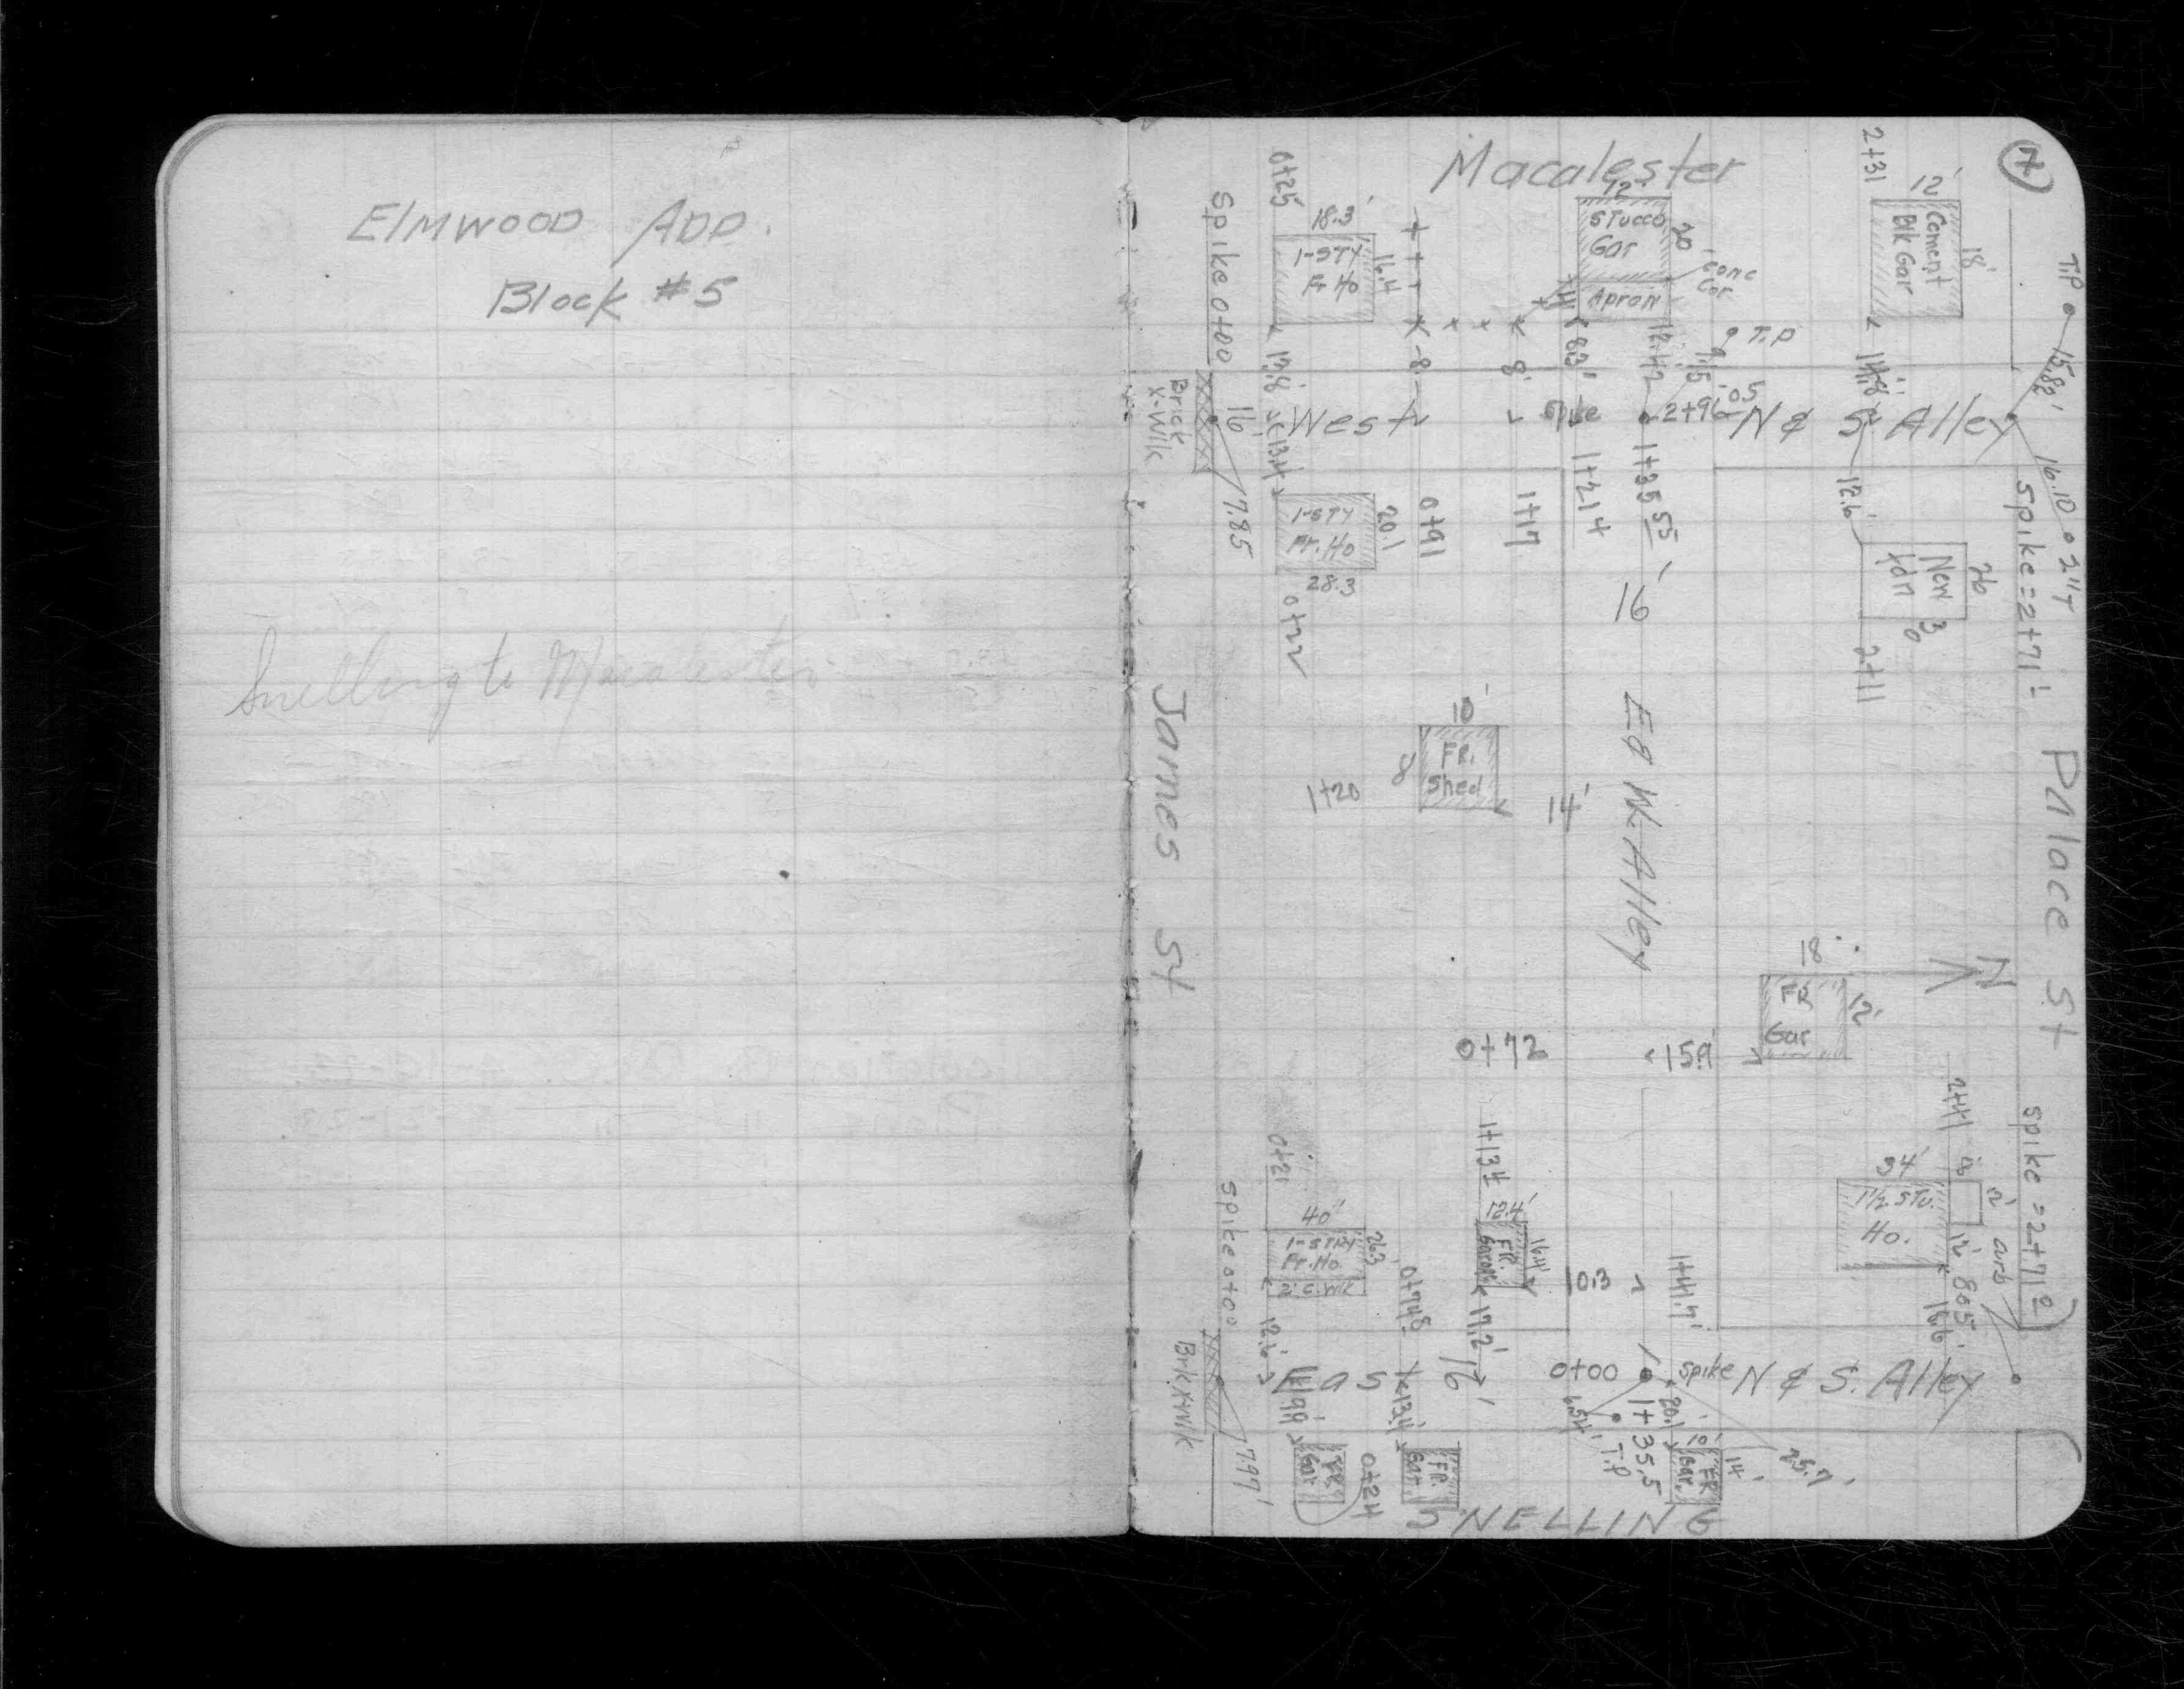 Elmwood Add.
Block #5
Snelling to Macalester
7
Macalester
0+25
Spike 0+00
18.3'
1-STY
Fr Ho
16.4
12'
STUCCO
Gar
Apron
20'
conc
Cor
2+31
12'
Cement
Blk Gar
18'
T.P
15.82'
T.P
8.3'
12.42
9.15'
8
8'
Brick
X-Wlk
16'
13.4
West
Spike
N & S. Alley
7.85
1-STY
Fr. Ho
20.1
28.3
0+22
0+91
1+17
1+21 4
1+35 55
16'
12.6'
New
fdn
26
30
2+11
16.10
2"T
Spike = 2+71'
James St
Palace St
E & W. Alley
10'
FR.
Shed
8
1+20
14'
18'
FR
Gar
12'
N
0+72
15.9
0+21
spike 0+00
40'
1-STRY
Fr. Ho
26.3
12.6'
0+74.8
1+13 4
12.4'
FR.
16.4'
17.2'
10.3
1+41.7'
2+41
34'
1 1/2 STU.
Ho.
12'
12'
80.5
16.6'
spike = 2+71 2
Brk X Wlk
7.97'
East
16'
0+00
spike
N & S. Alley
19.9'
13.4'
FR
Gar
0+24
FR.
Gar.
6.54'
T.P
1+35.5
20.1
10'
FR
Gar.
14'
25.7'
SNELLING